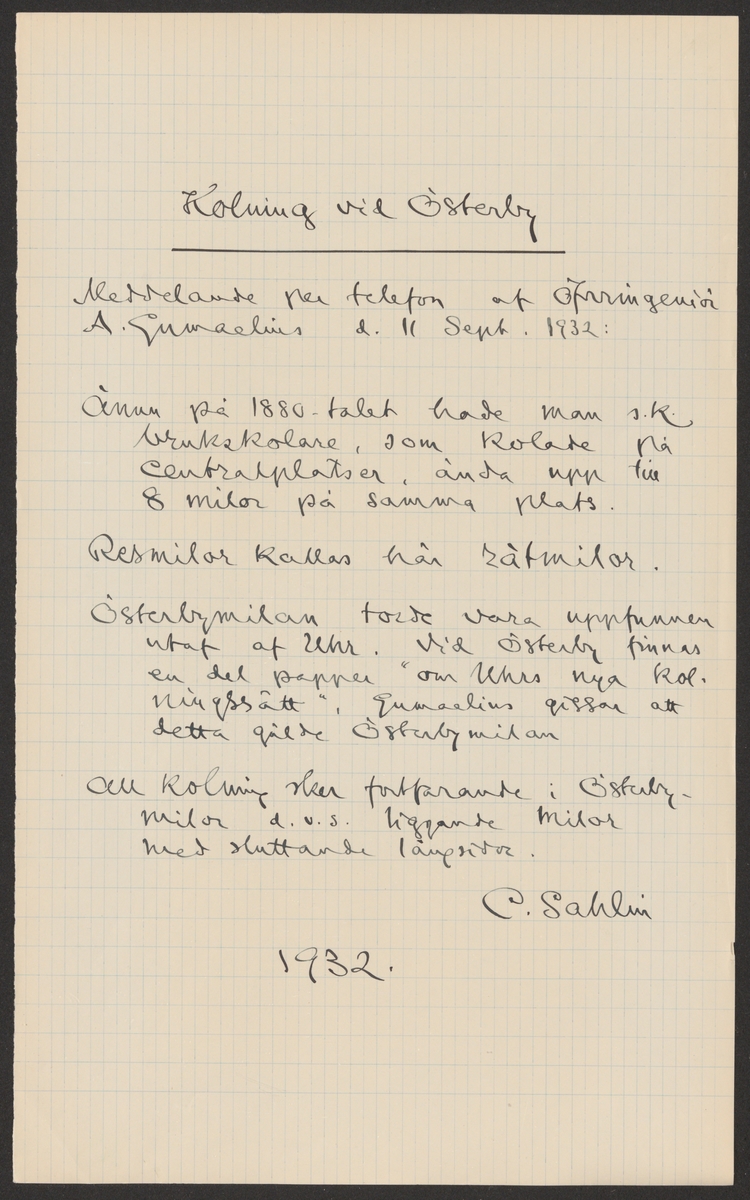 Kolning vid Österby
Meddelande per telefon af Öfveringeniör
A. Gumaelius d. 11 Sept. 1932:
Ännu på 1880-talet hade man s.k.
brukskolare, som kolade på
centralplatser, ända upp till
8 milor på samma plats.
Resmilor kallas här rätmilor.
Österbymilan torde vara uppfunnen
utaf af Uhr. Vid Österby finnas
en del papper "om Uhrs nya kol-
ningssätt", Gumaelius gissar att
detta gälde Österbymilan
All kolning sker fortfarande i Österby-
milor d.v.s. liggande milor
med sluttande långsidor.
C. Sahlin
1932.